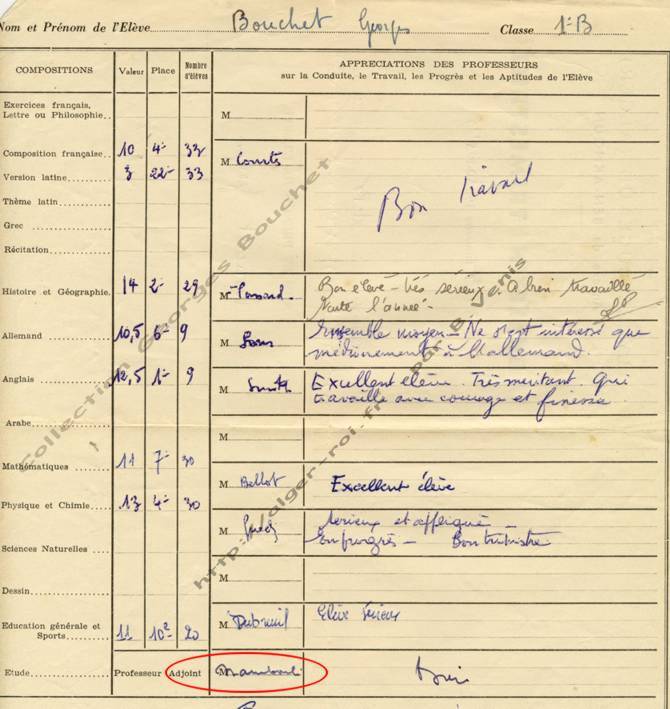 Nom et Prénom de l'Elève Bouchet Georges Classe 1re B
COMPOSITIONS Valeur Place Nombre d'élèves APPRECIATIONS DES PROFESSEURS
sur la Conduite, le Travail, les Progrès et les Aptitudes de l'Elève
Exercices français,
Lettre ou Philosophie M
Composition française 10 4e 33 M Courts
Version latine 3 22e 33
Thème latin Bon travail
Grec
Récitation
Histoire et Géographie 14 2e 29 Bon élève - très sérieux. A bien travaillé
toute l'année.
Allemand 10,5 6e 9 M Ensemble moyen - Ne s'est intéressé que
médiocrement à l'allemand.
Anglais 12,5 1e 9 M Smith Excellent élève. Très méritant. Qui
travaille avec courage et finesse
Arabe M
Mathématiques 11 7e 30 M Bellot Excellent élève
Physique et Chimie 13 4e 30 M Sérieux et appliqué -
En progrès - Bon trimestre
Sciences Naturelles
M
Dessin
Education générale et
Sports 11 10e 20 M Dubreuil Elève sérieux
Etude Professeur Adjoint M
Collection Georges Bouchet
http://alger-roi.fr par B.Venis